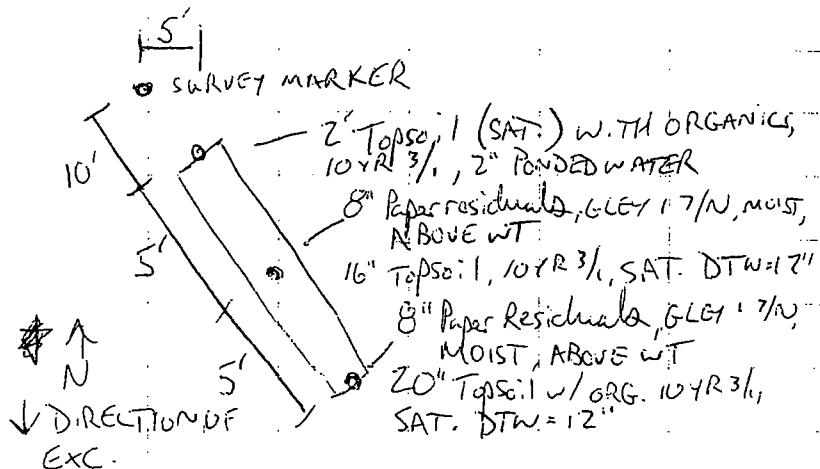 5'
SURVEY MARKER
10'
2' Topsoil (SAT.) WITH ORGANICS,
10YR 3/1, 2" PONDED WATER
8" Paper residuals, GLEY 1 7/N, MOIST,
ABOVE WT
5'
16" Topsoil, 10YR 3/1, SAT. DTW=12"
8" Paper Residuals, GLEY 1 7/N,
MOIST, ABOVE WT
N
5'
20" Topsoil w/ ORG. 10YR 3/1,
SAT. DTW=12"
DIRECTION OF
EXC.